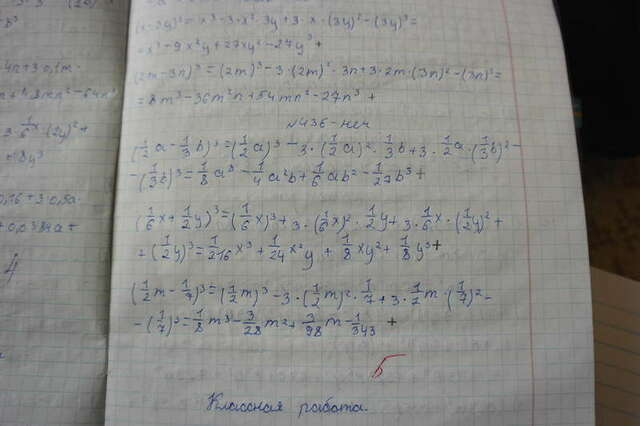 (x-3y)³=x³-3·x²·3y+3·x·(3y)²-(3y)³=
=x³-9x²y+27xy²-27y³+
(2m-3n)³=(2m)³-3·(2m)²·3n+3·2m·(3n)²-(3n)³=
=8m³-36m²n+54mn²-27n³ +
№436-неч
(1/2a-1/3b)³=(1/2a)³-3·(1/2a)²·1/3b+3·1/2a·(1/3b)²-
-(1/3b)³=1/8a³-1/4a²b+1/6ab²-1/27b³+
(1/6x+1/2y)³=(1/6x)³+3·(1/6x)²·1/2y+3·1/6x·(1/2y)²+
+(1/2y)³=1/216x³+1/24x²y+1/8xy²+1/8y³+
(1/2m-1/7)³=(1/2m)³-3·(1/2m)²·1/7+3·1/2m·(1/7)²-
-(1/7)³=1/8m³-3/28m²+3/98m-1/343 +
5
Классная работа.
4